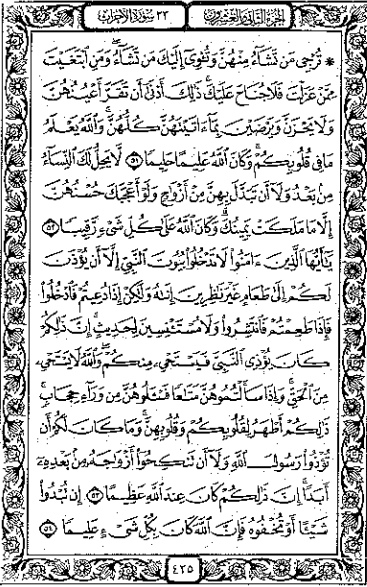 الجزء الثاني والعشرون ٣٣ سورة الأحزاب
* تُرْجِى مَن تَشَآءُ مِنْهُنَّ وَتُـْٔوِىٓ إِلَيْكَ مَن تَشَآءُ ۖ وَمَنِ ٱبْتَغَيْتَ
مِمَّنْ عَزَلْتَ فَلَا جُنَاحَ عَلَيْكَ ۚ ذَٰلِكَ أَدْنَىٰٓ أَن تَقَرَّ أَعْيُنُهُنَّ
وَلَا يَحْزَنَّ وَيَرْضَيْنَ بِمَآ ءَاتَيْتَهُنَّ كُلُّهُنَّ ۚ وَٱللَّهُ يَعْلَمُ
مَا فِى قُلُوبِكُمْ ۚ وَكَانَ ٱللَّهُ عَلِيمًا حَلِيمًا ٥١ لَّا يَحِلُّ لَكَ ٱلنِّسَآءُ
مِنۢ بَعْدُ وَلَآ أَن تَبَدَّلَ بِهِنَّ مِنْ أَزْوَٰجٍ وَلَوْ أَعْجَبَكَ حُسْنُهُنَّ
إِلَّا مَا مَلَكَتْ يَمِينُكَ ۗ وَكَانَ ٱللَّهُ عَلَىٰ كُلِّ شَىْءٍ رَّقِيبًا ٥٢
يَٰٓأَيُّهَا ٱلَّذِينَ ءَامَنُوا۟ لَا تَدْخُلُوا۟ بُيُوتَ ٱلنَّبِىِّ إِلَّآ أَن يُؤْذَنَ
لَكُمْ إِلَىٰ طَعَامٍ غَيْرَ نَٰظِرِينَ إِنَىٰهُ وَلَٰكِنْ إِذَا دُعِيتُمْ فَٱدْخُلُوا۟
فَإِذَا طَعِمْتُمْ فَٱنتَشِرُوا۟ وَلَا مُسْتَـْٔنِسِينَ لِحَدِيثٍ ۚ إِنَّ ذَٰلِكُمْ
كَانَ يُؤْذِى ٱلنَّبِىَّ فَيَسْتَحْىِۦ مِنكُمْ ۖ وَٱللَّهُ لَا يَسْتَحْىِۦ
مِنَ ٱلْحَقِّ ۚ وَإِذَا سَأَلْتُمُوهُنَّ مَتَٰعًا فَسْـَٔلُوهُنَّ مِن وَرَآءِ حِجَابٍ ۚ
ذَٰلِكُمْ أَطْهَرُ لِقُلُوبِكُمْ وَقُلُوبِهِنَّ ۚ وَمَا كَانَ لَكُمْ أَن
تُؤْذُوا۟ رَسُولَ ٱللَّهِ وَلَآ أَن تَنكِحُوٓا۟ أَزْوَٰجَهُۥ مِنۢ بَعْدِهِۦٓ
أَبَدًا ۚ إِنَّ ذَٰلِكُمْ كَانَ عِندَ ٱللَّهِ عَظِيمًا ٥٣ إِن تُبْدُوا۟
شَيْـًٔا أَوْ تُخْفُوهُ فَإِنَّ ٱللَّهَ كَانَ بِكُلِّ شَىْءٍ عَلِيمًا ٥٤
٤٢٥